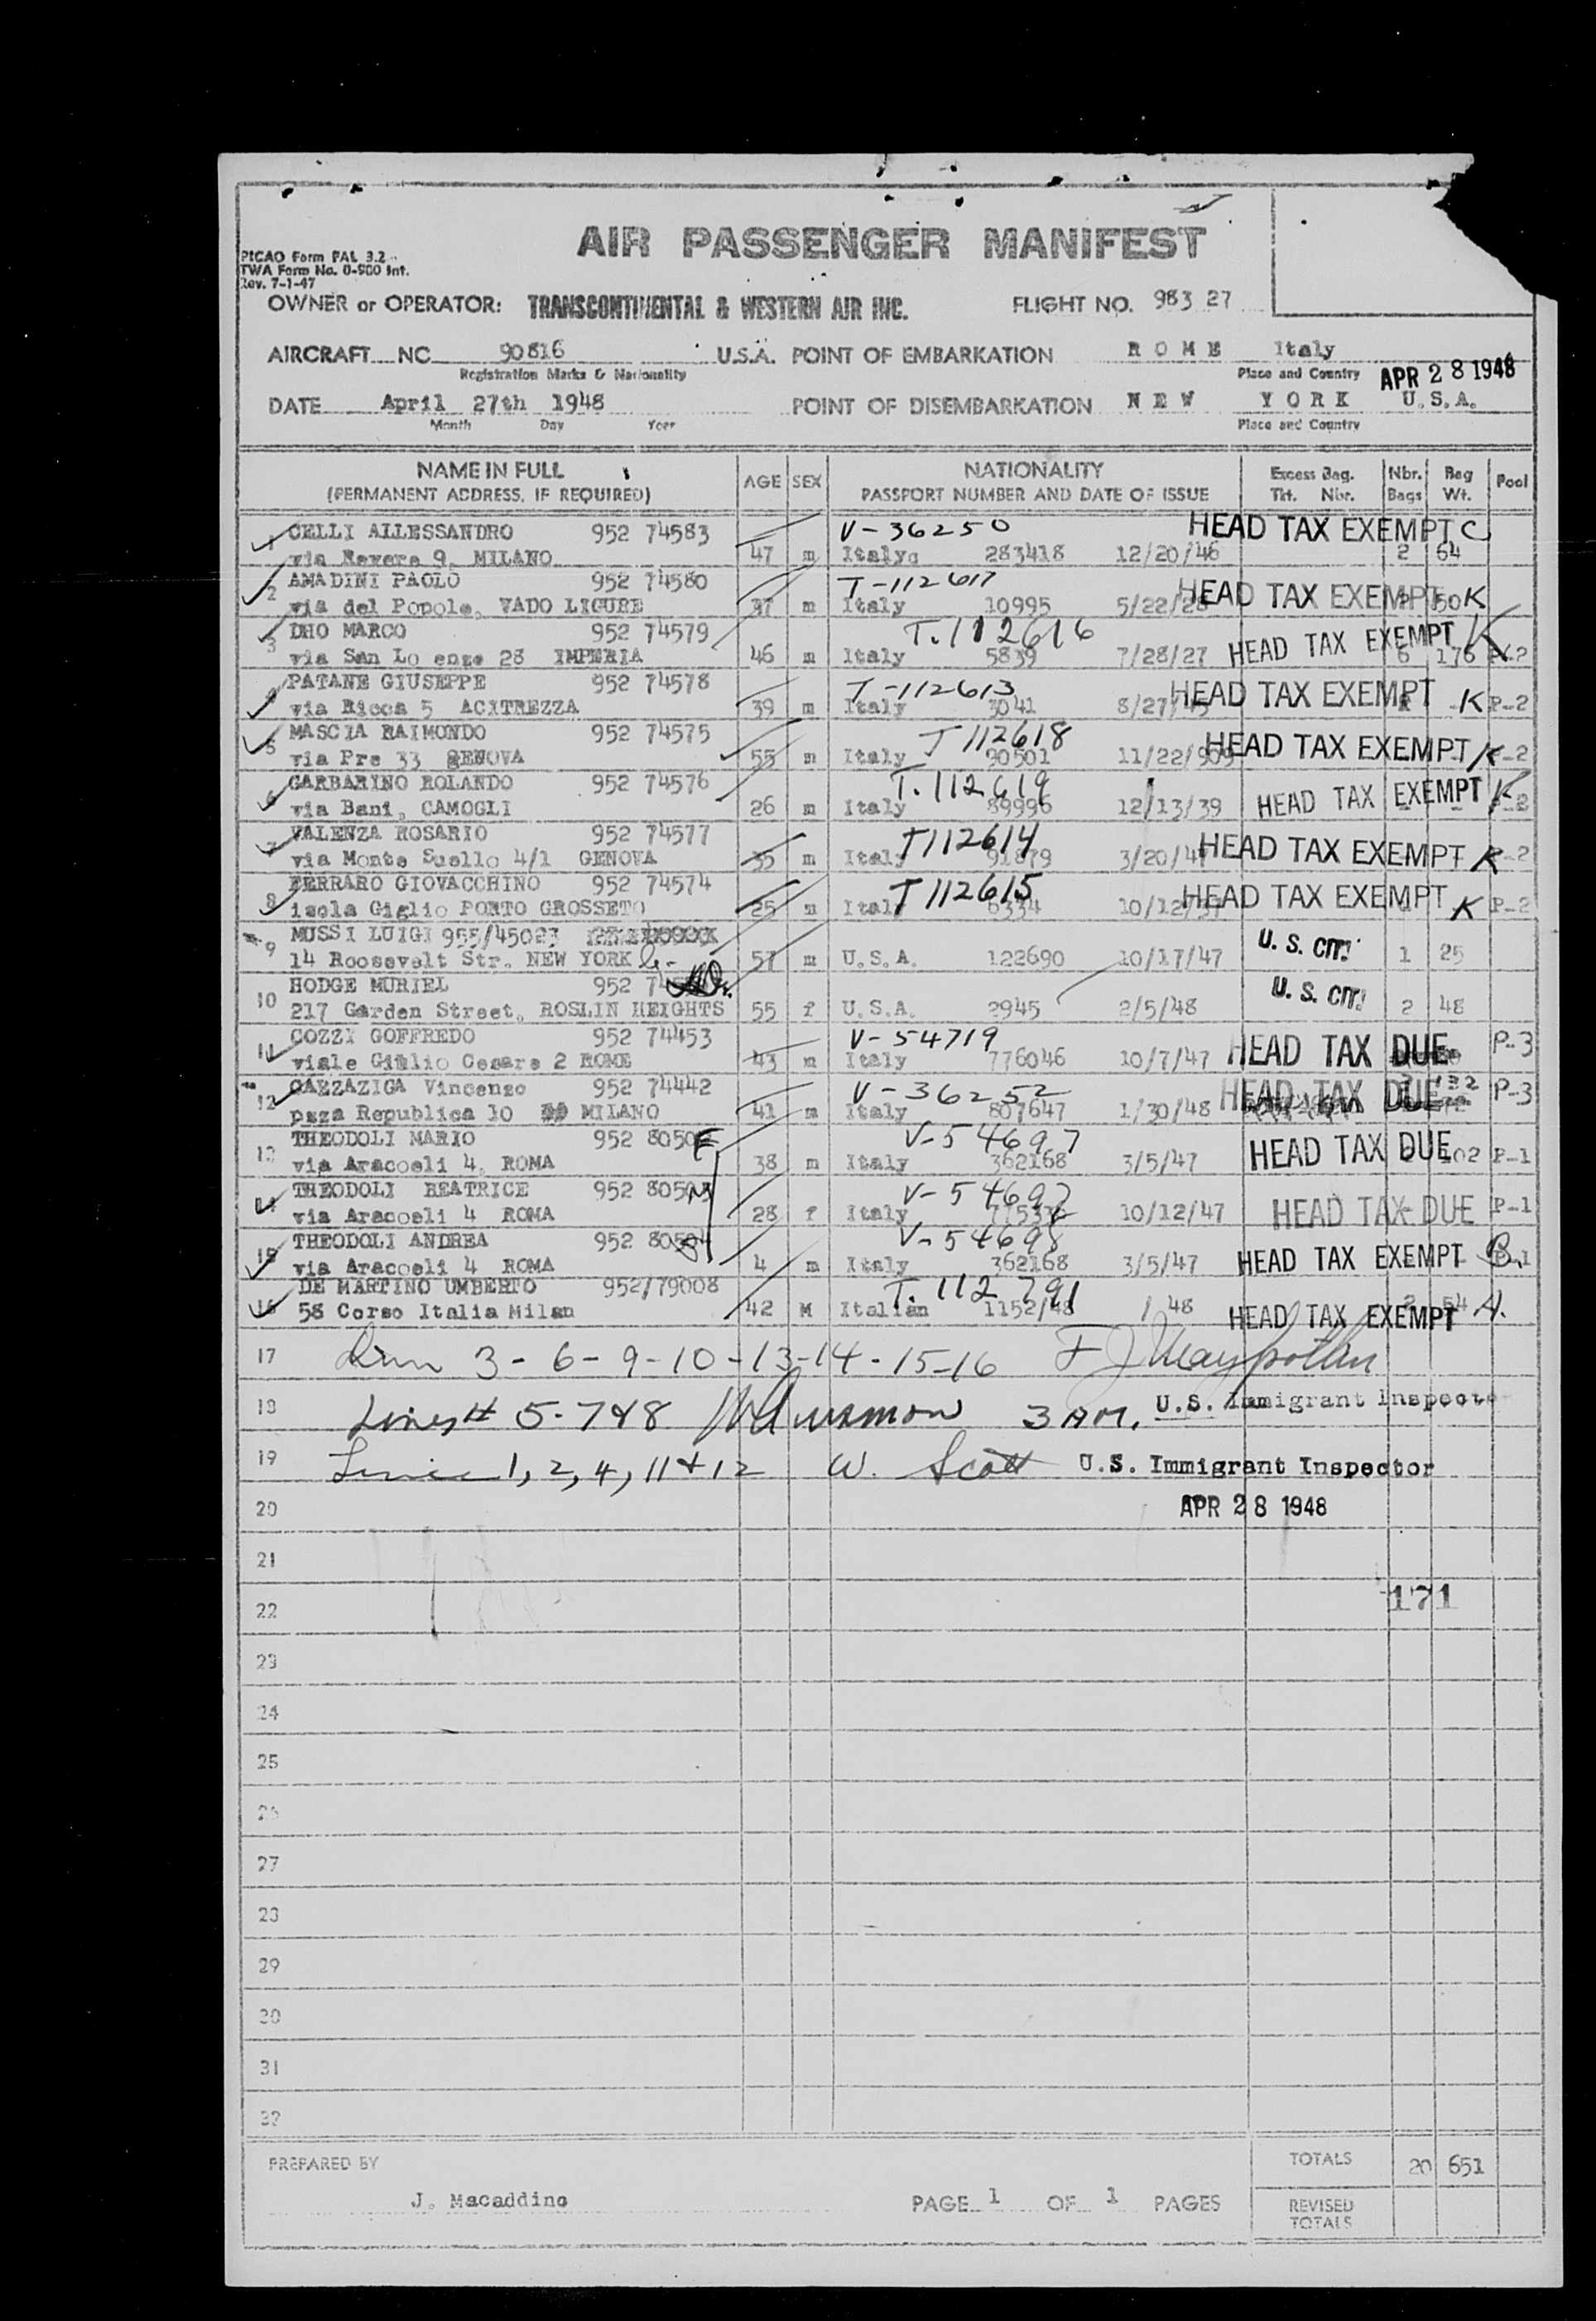 AIR PASSENGER MANIFEST
PICAO Form PAL 3.2
TWA Form No. 0-900 Int.
Rev. 7-1-47
OWNER or OPERATOR: TRANSCONTINENTAL & WESTERN AIR INC. FLIGHT NO. 983 27
AIRCRAFT NC 90816 U.S.A. POINT OF EMBARKATION R O M E Italy
Registration Marks & Nationality Place and Country APR 28 1948
DATE April 27th 1948 POINT OF DISEMBARKATION N E W Y O R K U.S.A.
Month Day Year Place and Country
NAME IN FULL AGE SEX NATIONALITY Excess Bag. Nbr. Bag Pool
(PERMANENT ADDRESS, IF REQUIRED) PASSPORT NUMBER AND DATE OF ISSUE Tkt. Nbr. Bags Wt.
1 CELLI ALLESSANDRO 952 74583 V-36250 HEAD TAX EXEMPT C
via Revere 9, MILANO 47 m Italy 283418 12/20/46 2 64
2 AMADINI PAOLO 952 74580 T-112617 HEAD TAX EXEMPT K
via del Popolo, VADO LIGURE 37 m Italy 10995 5/22/28 50
3 DHO MARCO 952 74579 T.112616 HEAD TAX EXEMPT K
via San Lo enzo 28 IMPERIA 46 m Italy 5839 7/28/27 6 176 P-2
4 PATANE GIUSEPPE 952 74578 T-112613 HEAD TAX EXEMPT K
via Ricca 5 ACITREZZA 39 m Italy 3041 8/27/45 P-2
5 MASCIA RAIMONDO 952 74575 T 112618 HEAD TAX EXEMPT K
via Pre 33 GENOVA 55 m Italy 90501 11/22/909 P-2
6 GARBARINO ROLANDO 952 74576 T.112619 HEAD TAX EXEMPT K
via Bani, CAMOGLI 26 m Italy 89996 12/13/39 P-2
7 VALENZA ROSARIO 952 74577 T112614 HEAD TAX EXEMPT K
via Monte Suello 4/1 GENOVA 35 m Italy 91879 3/20/47 P-2
8 FERRARO GIOVACCHINO 952 74574 T112615 HEAD TAX EXEMPT K
isola Giglio PORTO GROSSETO 25 m Italy 6334 10/12/37 P-2
9 MUSSI LUIGI 955/45023 U. S. CIT.
14 Roosevelt Str. NEW YORK 57 m U.S.A. 122690 10/17/47 1 25
10 HODGE MURIEL 952 U. S. CIT.
217 Garden Street, ROSLIN HEIGHTS 55 f U.S.A. 2945 2/5/48 2 48
11 COZZI GOFFREDO 952 74453 V-54719 HEAD TAX DUE P-3
viale Giulio Cesare 2 ROME 43 m Italy 776046 10/7/47
12 GAZZAZIGA Vincenzo 952 74442 V-36252 HEAD TAX DUE 132 P-3
pzza Republica 10 MILANO 41 m Italy 807647 1/30/48
13 THEODOLI MARIO 952 8050 V-54697 HEAD TAX DUE
via Aracoeli 4, ROMA 38 m Italy 362168 3/5/47 102 P-1
14 THEODOLI BEATRICE 952 80503 V-54697 HEAD TAX DUE P-1
via Aracoeli 4 ROMA 28 f Italy 10/12/47
15 THEODOLI ANDREA 952 80504 V-54698 HEAD TAX EXEMPT P-1
via Aracoeli 4 ROMA 4 m Italy 362168 3/5/47
16 DE MARTINO UMBERTO 952/79008 T.112791 HEAD TAX EXEMPT
58 Corso Italia Milan 42 M Italian 1152/48 / 48 2 54
17 3-6-9-10-13-14-15-16
18 Lines # 5-7&8 3 AM. U.S. Immigrant Inspector
19 Lines 1, 2, 4, 11 + 12 W. Scott U.S. Immigrant Inspector
20 APR 28 1948
21
22 171
23
24
25
26
27
28
29
30
31
32
PREPARED BY TOTALS 20 651
J. Macaddino PAGE 1 OF 1 PAGES REVISED TOTALS